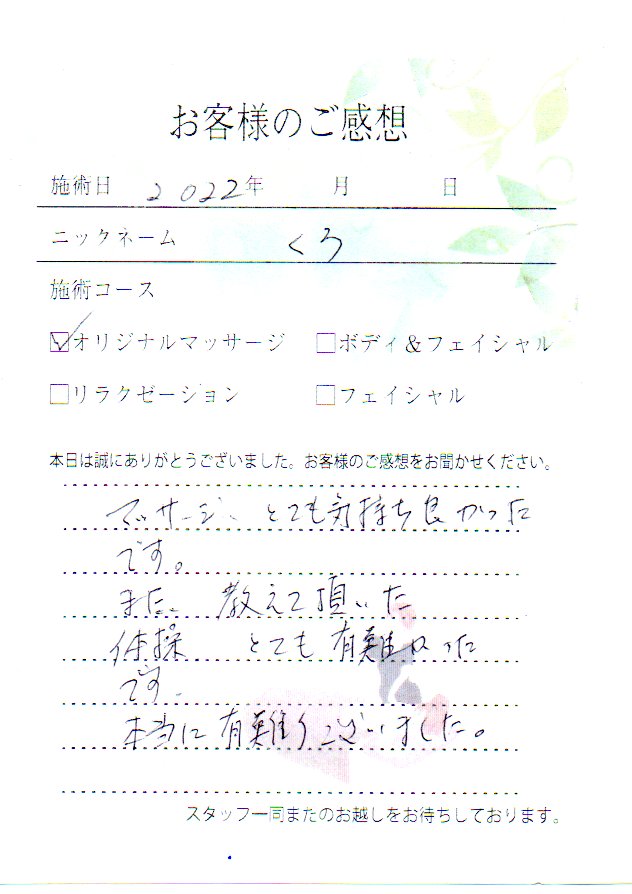 お客様のご感想
施術日 2022年 月 日
ニックネーム くろ
施術コース
☑オリジナルマッサージ □ボディ&フェイシャル
□リラクゼーション □フェイシャル
本日は誠にありがとうございました。お客様のご感想をお聞かせください。
マッサージ、とても気持ち良かった
です。
また、教えて頂いた
体操 とても有難かった
です。
本当に有難うございました。
スタッフ一同またのお越しをお待ちしております。